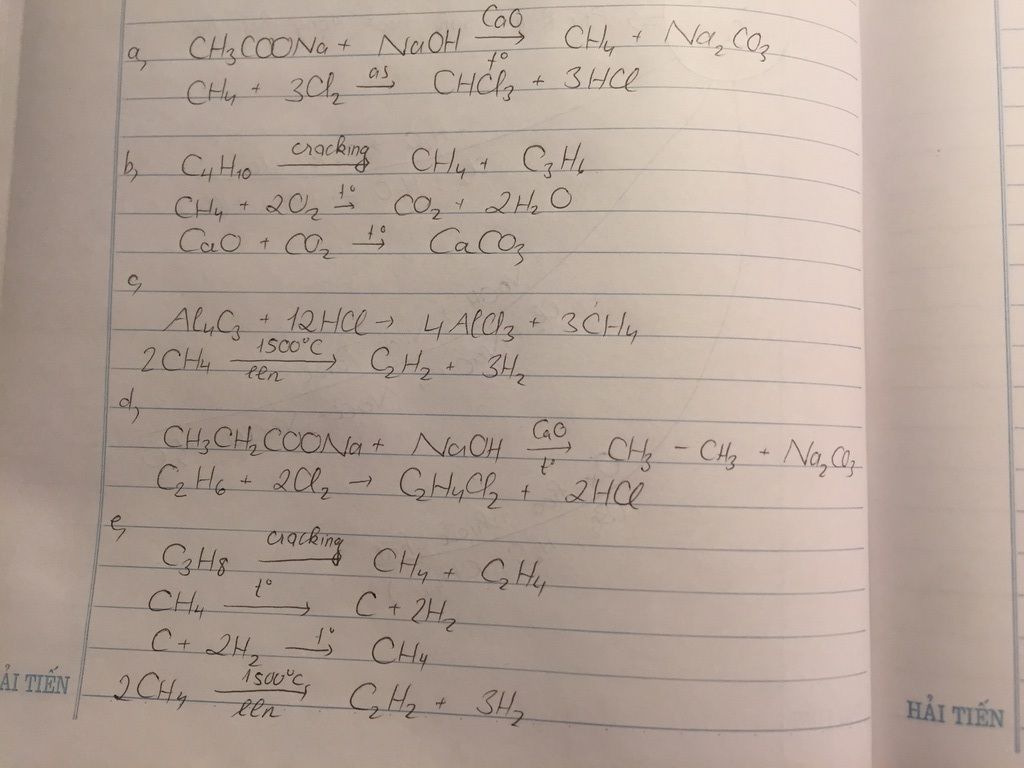 a, CH₃COONa + NaOH →(CaO, t°) CH₄ + Na₂CO₃
CH₄ + 3Cl₂ →(as) CHCl₃ + 3HCl
b, C₄H₁₀ →(cracking) CH₄ + C₃H₆
CH₄ + 2O₂ →(t°) CO₂ + 2H₂O
CaO + CO₂ →(t°) CaCO₃
c,
Al₄C₃ + 12HCl → 4AlCl₃ + 3CH₄
2CH₄ →(1500°C, lln) C₂H₂ + 3H₂
d,
CH₃CH₂COONa + NaOH →(CaO, t°) CH₃ – CH₃ + Na₂CO₃
C₂H₆ + 2Cl₂ → C₂H₄Cl₂ + 2HCl
e,
C₃H₈ →(cracking) CH₄ + C₂H₄
CH₄ →(t°) C + 2H₂
C + 2H₂ →(t°) CH₄
2CH₄ →(1500°C, lln) C₂H₂ + 3H₂
ẢI TIẾN
HẢI TIẾN